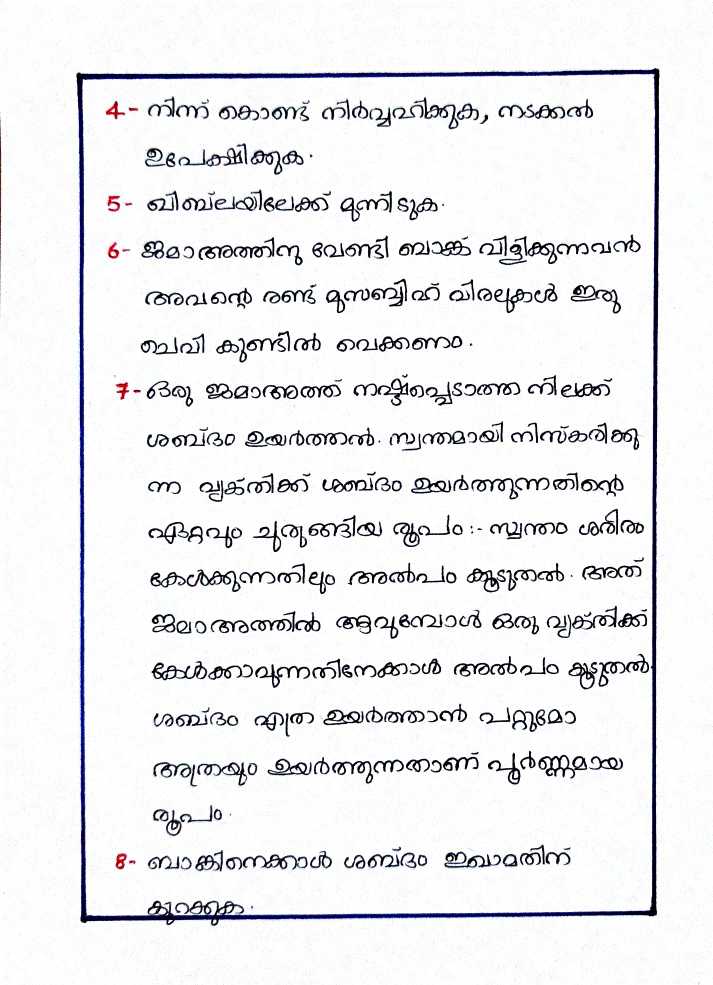 4- നിന്ന് കൊണ്ട് നിർവ്വഹിക്കുക, നടക്കൽ
ഉപേക്ഷിക്കുക.
5- ഖിബ്‌ലയിലേക്ക് മുന്നിടുക.
6- ജമാഅത്തിനു വേണ്ടി ബാങ്ക് വിളിക്കുന്നവൻ
അവന്റെ രണ്ട് മുസബ്ബിഹ് വിരലുകൾ ഇരു
ചെവി കുണ്ടിൽ വെക്കണം.
7- ഒരു ജമാഅത്ത് നഷ്ടപ്പെടാത്ത നിലക്ക്
ശബ്ദം ഉയർത്തൽ. സ്വന്തമായി നിസ്കരിക്കു
ന്ന വ്യക്തിക്ക് ശബ്ദം ഉയർത്തുന്നതിന്റെ
ഏറ്റവും ചുരുങ്ങിയ രൂപം :- സ്വന്തം ശരീരം
കേൾക്കുന്നതിലും അൽപം കൂടുതൽ. അത്
ജമാഅത്തിൽ ആവുമ്പോൾ ഒരു വ്യക്തിക്ക്
കേൾക്കാവുന്നതിനേക്കാൾ അൽപം കൂടുതൽ.
ശബ്ദം എത്ര ഉയർത്താൻ പറ്റുമോ
അത്രയും ഉയർത്തുന്നതാണ് പൂർണ്ണമായ
രൂപം.
8- ബാങ്കിനെക്കാൾ ശബ്ദം ഇഖാമതിന്
കുറക്കുക.